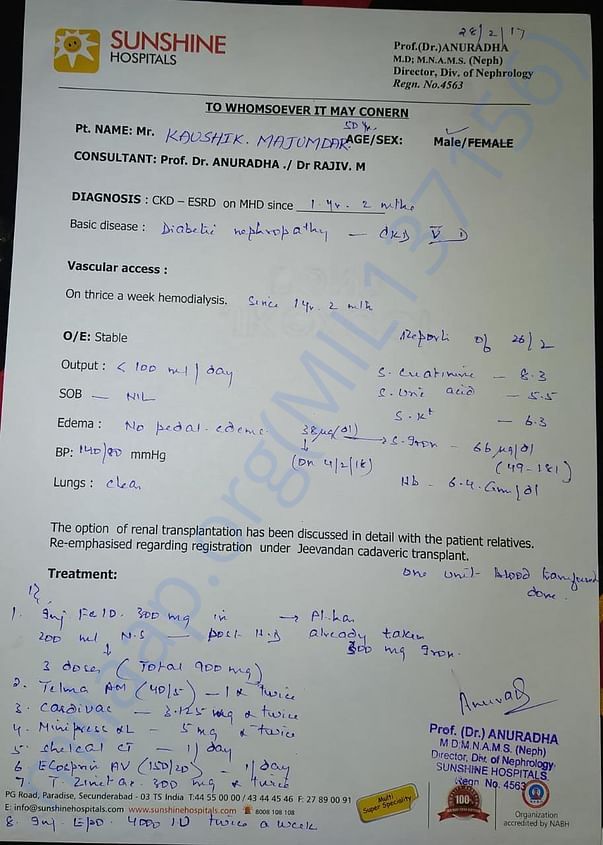 28/2/17
SUNSHINE
HOSPITALS
Prof.(Dr.)ANURADHA
M.D; M.N.A.M.S. (Neph)
Director, Div. of Nephrology
Regn. No.4563
TO WHOMSOEVER IT MAY CONERN
Pt. NAME: Mr. KAUSHIK. MAJUMDAR 50 Yr. AGE/SEX: Male/FEMALE
CONSULTANT: Prof. Dr. ANURADHA ./ Dr RAJIV. M
DIAGNOSIS : CKD – ESRD on MHD since 1 yr. 2 mths
Basic disease : Diabetic nephropathy — CKD V D
Vascular access :
On thrice a week hemodialysis. Since 1 yr. 2 mth
O/E: Stable
Reports of 26/2
Output : < 100 ml / day
S. Creatinine — 8.3
SOB — NIL
S. Uric acid — 5.5
S. K+ — 6.3
Edema : No pedal edema
38 µg/dl → S. Iron — 66 µg/dl
BP: 140/80 mmHg
(On 4/2/18)
(49-181)
Lungs : clear
Hb — 6.4 Gm/dl
The option of renal transplantation has been discussed in detail with the patient relatives.
Re-emphasised regarding registration under Jeevandan cadaveric transplant.
Treatment:
One unit blood transfused
done.
1. Inj 300 mg in → Pt. has
200 ml N.S — post H.D already taken
↓ 300 mg Iron.
3 doses (Total 900 mg)
2. Telma AM (40/5) — 1 x twice
3. Cardivas — 3.125 mg x twice
4. Minipress XL — 5 mg x twice
5. Shelcal CT — 1/day
6. Ecosprin AV (150/20) — 1/day
7. T. 300 mg x twice
Prof. (Dr.) ANURADHA
M.D;M.N.A.M.S. (Neph)
Director, Div. of Nephrology
SUNSHINE HOSPITALS
Regn. No. 4563
PG Road, Paradise, Secunderabad - 03 TS India T:44 55 00 00 / 43 44 45 46 F: 27 89 00 91
E: info@sunshinehospitals.com www.sunshinehospitals.com 8008 108 108
Multi
Super Speciality
100
Organization
accredited by NABH
8. Inj. EPO. 4000 IU twice a week